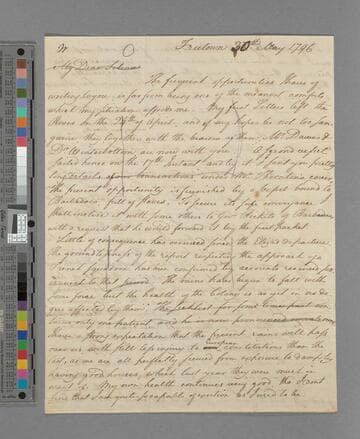 Freetown 30th May 1796
My Dear
The frequent opportunities I have of
writing to you is far from being one of the meanest comforts
which my situation affords me. My first Letters left the
River on the 24th of April, and if my hopes be not too san-
guine they together with the bearers of them Mr Dawes &
Dr Winterbottom are now with you A second vessel
sailed hence on the 17th Instant and by it I sent you pretty
long details of our transactions under Mr cover
the present opportunity is furnished by a vessel bound to
Barbadoes full of slaves. To secure its safe conveyance
I shall inclose it with some others to Govr Ricketts of Barbadoes
with a request that he would forward it by the first Packet.
Little of consequence has occurred since the departure
the groundlessness of the report respecting the approach of a
French squadron has been confirmed by accounts received
to that period. The rains have begun to fall with
some force but the health of the Colony is as yet in no de-
gree affected by them.
only one patient, and he is
I have a strong expectation that the present rains will pass
over us with still less injury to our European constitutions than the
last, as we are all perfectly secured from exposure to damp, by
having good houses, which last year they were much in
want of. My own health continues very good, tho I cannot
say that I am quite so capable of exertion as I used to be